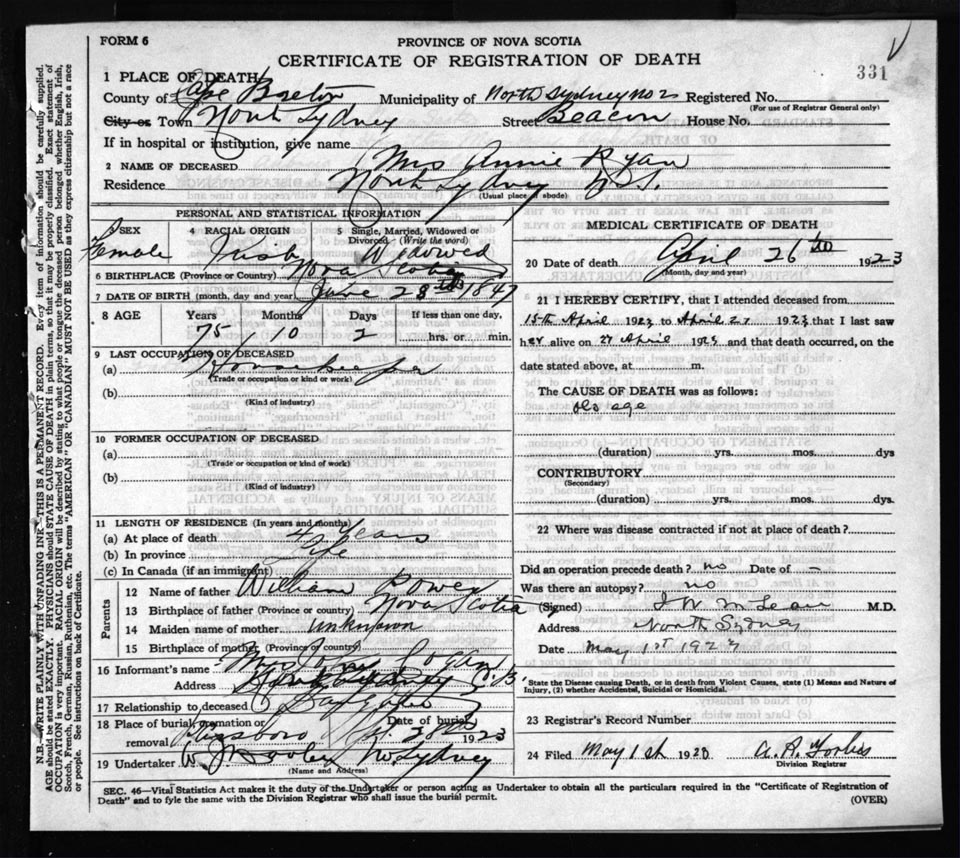 FORM 6
PROVINCE OF NOVA SCOTIA
CERTIFICATE OF REGISTRATION OF DEATH
331
1 PLACE OF DEATH
County of Cape Breton Municipality of North Sydney No 2 Registered No.
(For use of Registrar General only)
City or Town North Sydney Street Beacon House No.
If in hospital or institution, give name
2 NAME OF DECEASED Mrs Annie Ryan
Residence North Sydney N.S.
(Usual place of abode)
PERSONAL AND STATISTICAL INFORMATION
3 SEX Female
4 RACIAL ORIGIN Irish
5 Single, Married, Widowed or Divorced (Write the word) Widowed
6 BIRTHPLACE (Province or Country) Nova Scotia
7 DATE OF BIRTH (month, day and year) June 28th 1847
8 AGE Years Months Days If less than one day,
75 10 2 hrs. or min.
9 LAST OCCUPATION OF DECEASED
(a) Housekeeper
(Trade or occupation or kind or work)
(b)
(Kind of industry)
10 FORMER OCCUPATION OF DECEASED
(a)
(Trade or occupation or kind of work)
(b)
(Kind of industry)
11 LENGTH OF RESIDENCE (In years and months)
(a) At place of death Years
(b) In province Life
(c) In Canada (if an immigrant)
Parents
12 Name of father William Power
13 Birthplace of father (Province or country) Nova Scotia
14 Maiden name of mother unknown
15 Birthplace of mother (Province or country)
16 Informant's name Mrs
Address
17 Relationship to deceased
18 Place of burial, cremation or removal Date of burial 28th 1923
19 Undertaker W. J. Dooley N Sydney
(Name and Address)
MEDICAL CERTIFICATE OF DEATH
20 Date of death April 26th 1923
(Month, day and year)
21 I HEREBY CERTIFY, that I attended deceased from
15th April 1923 to April 27 1923 that I last saw
her alive on 27 April 1923 and that death occurred, on the
date stated above, at m.
The CAUSE OF DEATH was as follows:
old age
(duration) yrs. mos. dys
CONTRIBUTORY
(Secondary)
(duration) yrs. mos. dys.
22 Where was disease contracted if not at place of death?
Did an operation precede death? no Date of -
Was there an autopsy? no
(Signed) McLean M.D.
Address North Sydney
Date May 1st 1923
State the Disease causing Death, or in death from Violent Causes, state (1) Means and Nature of
Injury, (2) whether Accidental, Suicidal or Homicidal.
23 Registrar's Record Number
24 Filed May 1st 1923 A. R. Forbes
Division Registrar
SEC. 46—Vital Statistics Act makes it the duty of the Undertaker or person acting as Undertaker to obtain all the particulars required in the "Certificate of Registration of
Death" and to fyle the same with the Division Registrar who shall issue the burial permit.
(OVER)
N.B.—WRITE PLAINLY WITH UNFADING INK—THIS IS A PERMANENT RECORD. Every item of information should be carefully supplied.
AGE should be stated EXACTLY. PHYSICIANS should STATE CAUSE OF DEATH in plain terms, so that it may be properly classified. Exact statement of
OCCUPATION is very important. RACIAL ORIGIN will be described by stating to what people or tongue the deceased person belonged whether English, Irish,
Scotch, French, German, Russian, Ruthenian, etc. The terms "AMERICAN" OR "CANADIAN" MUST NOT BE USED as they express citizenship but not a race
or people. See instructions on back of Certificate.